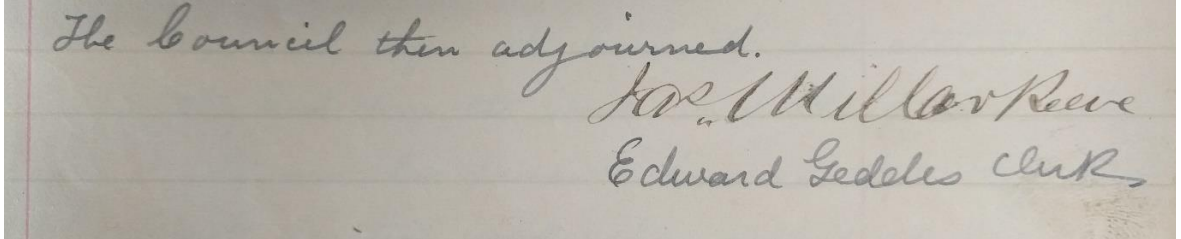 The Council then adjourned.
Jas. Millar Reeve
Edward Geddes Clerk